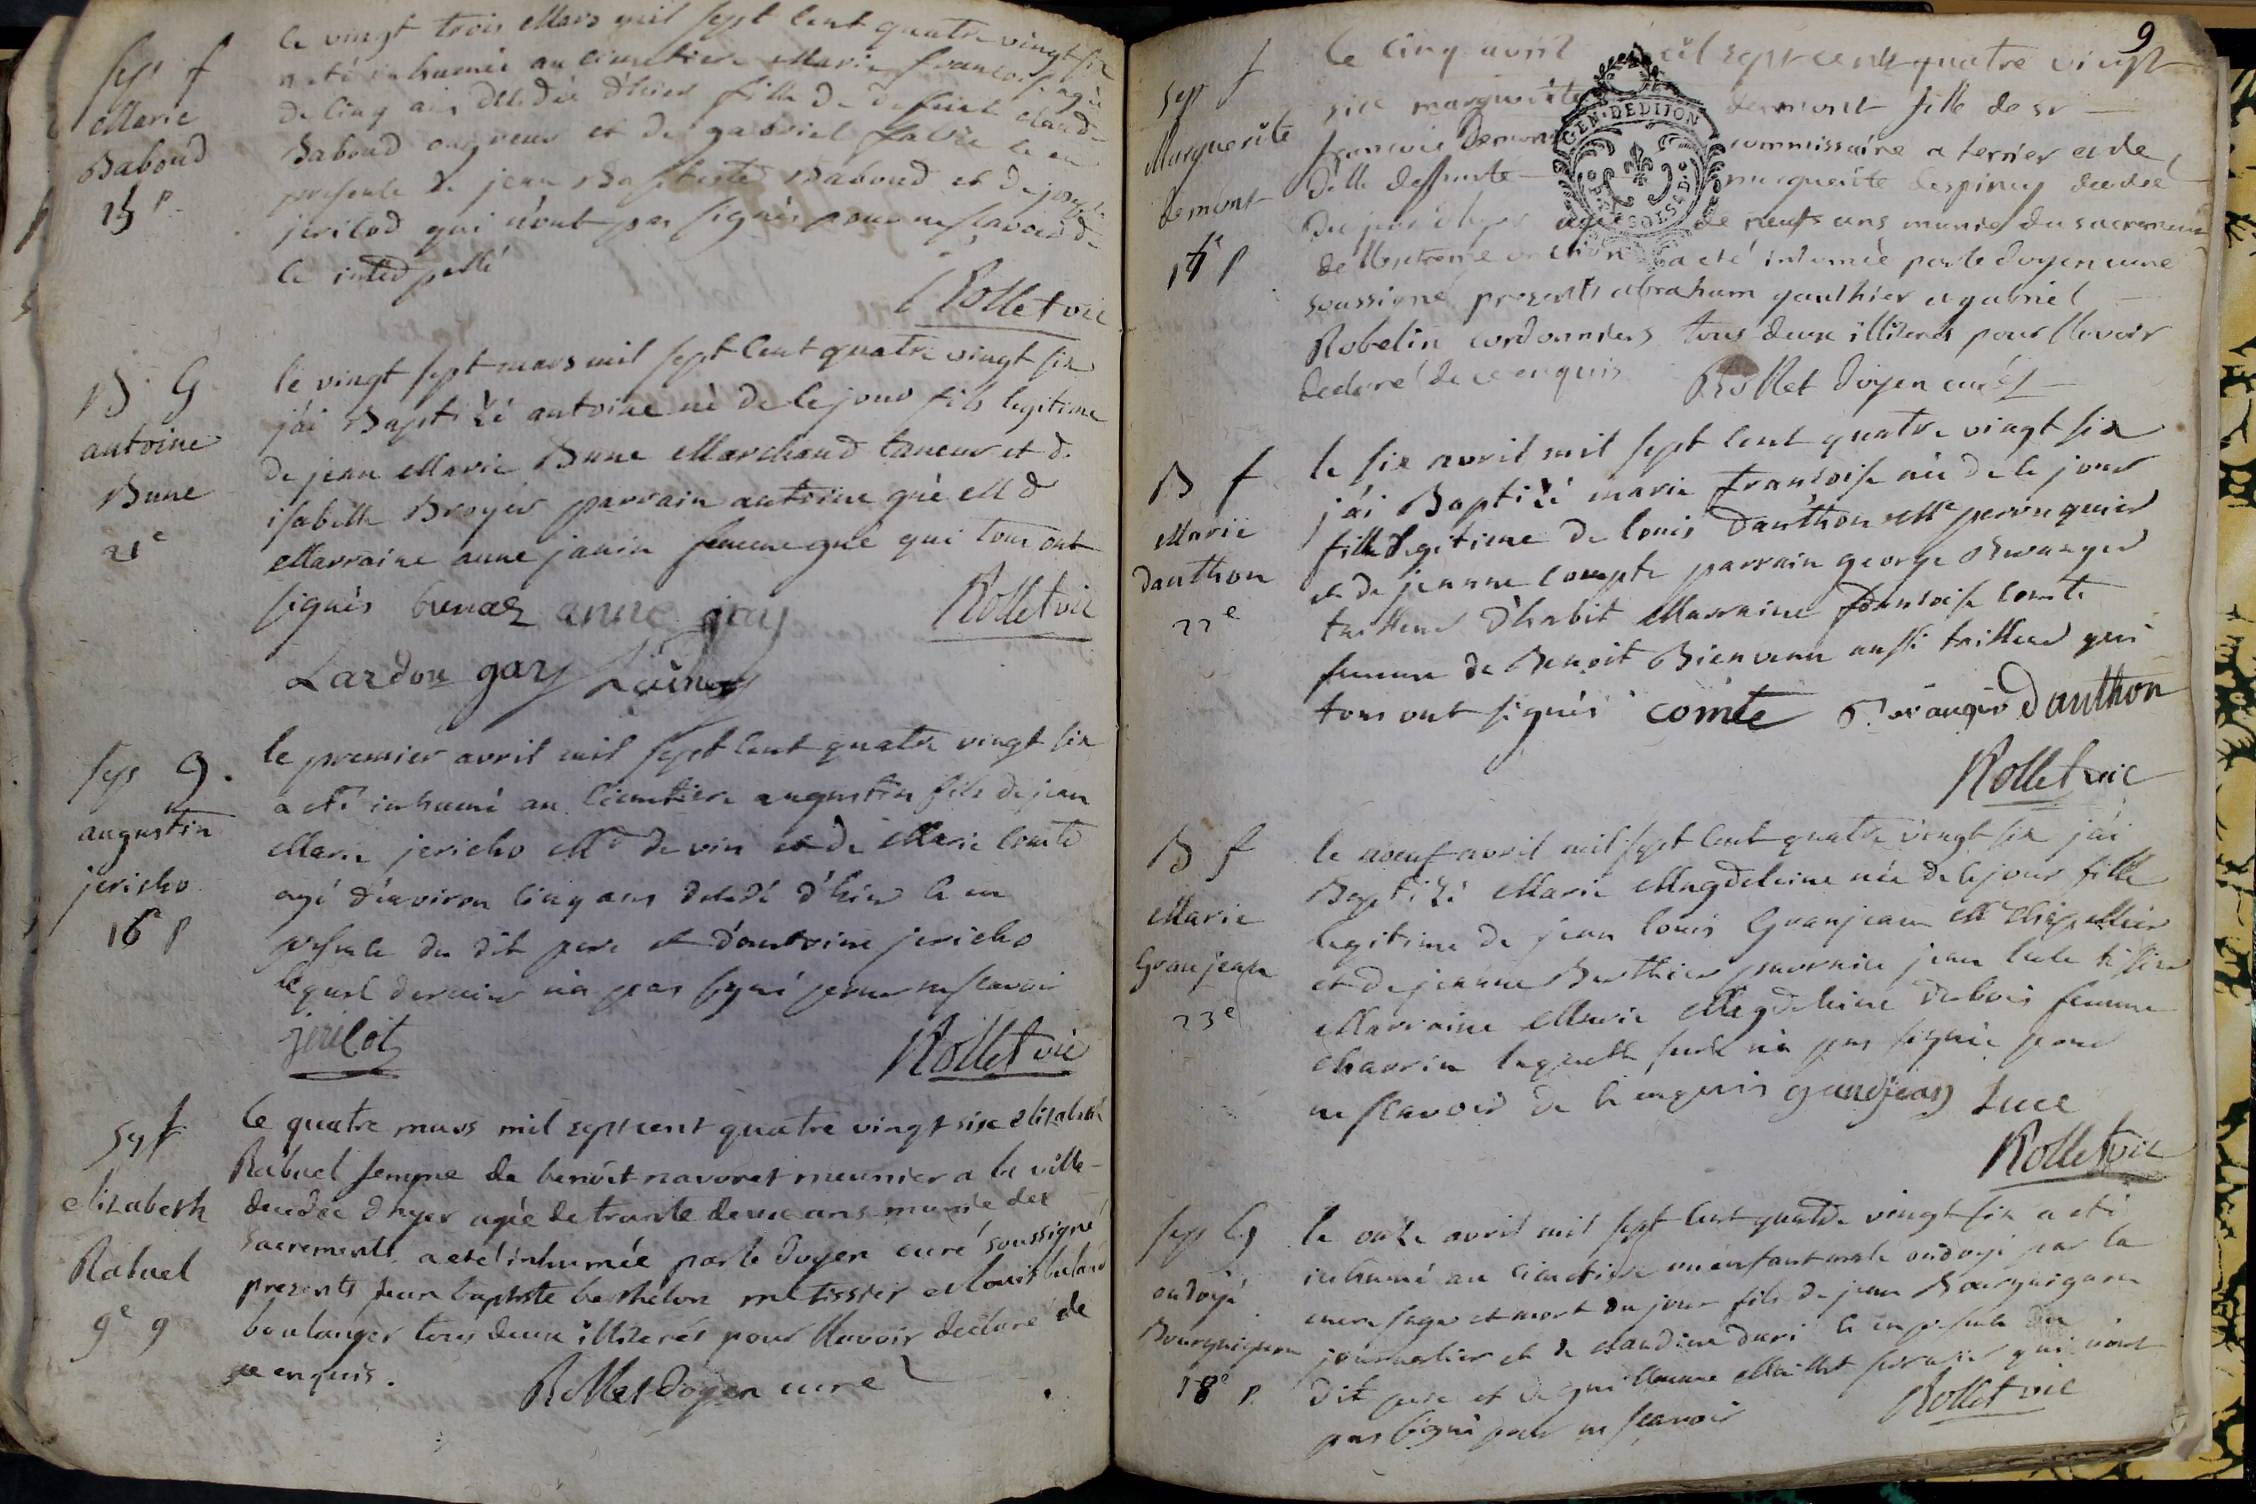 Sep f
Marie
Baboud
15 p
le vingt trois Mars mil sept cent quatre vingt six
a eté inhumée au cimetiere Marie francoise agée
de cinq ans décédée d'hier fille de deffunt claude
Baboud et de gabriel favre le en
presence de jean Baptiste Baboud et de joseph
jericod qui n'ont pas signés pour ne sçavoir de
ce interpellé
Rollet vic
B G
antoine
Bune
21e
le vingt sept mars mil sept cent quatre vingt six
j'ai Baptizé antoine né de ce jour fils legitime
de jean Marie Bune Marchand taneur et de
isabelle Broyer parrain antoine gué Md
Marraine anne janin femme gué qui tous ont
signés bunoz anne gay Rollet vic
Lardon gay
Sep g.
augustin
jericho
16e p
le premier avril mil sept cent quatre vingt six
a eté inhumé au Cimetiere augustin fils de jean
Marie jericho Md de vin et de Marie Comte
agé d'environ cinq ans décédé d'hier le en
presence du dit pere et d'antoine jericho
lequel dernier n'a pas signé pour ne sçavoir
jericot Rollet vic
Sep f
elizabeth
Rabuel
9e g
le quatre mars mil sept cent quatre vingt six elizabeth
Rabuel femme de benoit navoret meunier a la ville
decedée dhyer agée de trante deux ans munie des
sacrements a eté inhumée par le doyen curé soussigné
presents jean baptiste berthelon metissier et louis
boulanger tous deux illiterés pour llavoir declaré de
ce enquis.
Rollet doyen curé
9
sep f
Marguerite
demont
17e p
le cinq avril mil sept cent quatre vingt
six marguerite demont fille de sr
francois demont commissaire a terrier et de
delle deffunte marguerite despiney decedée
du jour d'hyer agée de neuf ans munie du sacrement
de llextreme onction a eté inhumée par le doyen curé
soussigné presents abraham gauthier et gabriel
Robelin cordonniers tous deux illiterés pour llavoir
declaré de ce enquis Rollet doyen curé
GEN. DE DIJON
B f
Marie
danthon
22e
le six avril mil sept cent quatre vingt six
j'ai Baptizé marie francoise née de ce jour
fille legitime de louis Danthon Me perruquier
et de jeanne compte parrain george
tailleur d'habit Marraine francoise comte
femme de Benoit Bienvenu aussi tailleur qui
tous ont signés comte Danthon
Rollet vic
B f
Marie
Granjean
23e
le neuf avril mil sept cent quatre vingt six j'ai
Baptizé Marie Magdeleine née de ce jour fille
legitime de jean louis Granjean Me Chapellier
et de jeanne Berthier parrain jean luce tissier
Marraine Marie Magdeleine Dubois femme
Chavrin laquelle seule n'a pas signée pour
ne sçavoir de ce enquis grandjean Luce
Rollet vic
Sep G
ondoyé
Bourguignon
18e p.
le onze avril mil sept cent quatre vingt six a eté
inhumé au cimetiere un enfant male ondoyé par la
mere sage et mort du jour fils de jean Bourguignon
journalier et de claudine duri le en presence du
dit pere et de guillaume Maillet serrurier qui n'ont
pas signé pour ne sçavoir Rollet vic